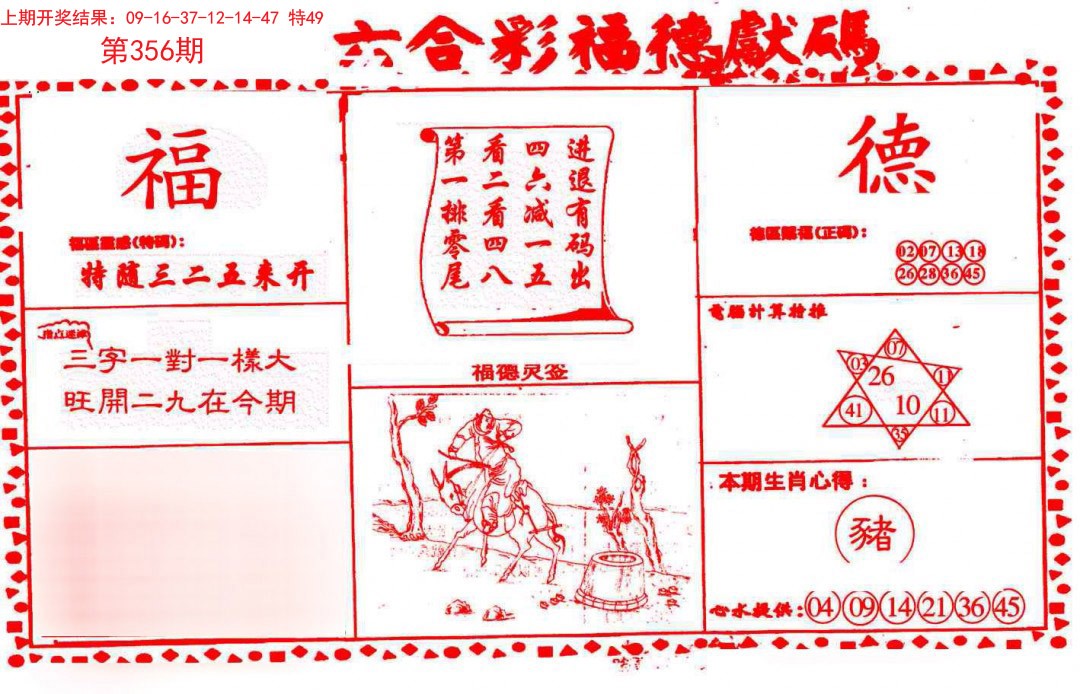 上期开奖结果：09-16-37-12-14-47 特49
第356期
六合彩福德獻碼
福
福區靈感(特碼)：
特随三二五来开
三字一對一樣大
旺開二九在今期
进退有码出
四六减一五
看二看四八
第一排零尾
福德灵签
德
(正碼)：
02 07 13 18
26 28 36 45
電腦計算檢推
07
03
26
41
10
11
35
本期生肖心得：
豬
心水提供：04 09 14 21 36 45